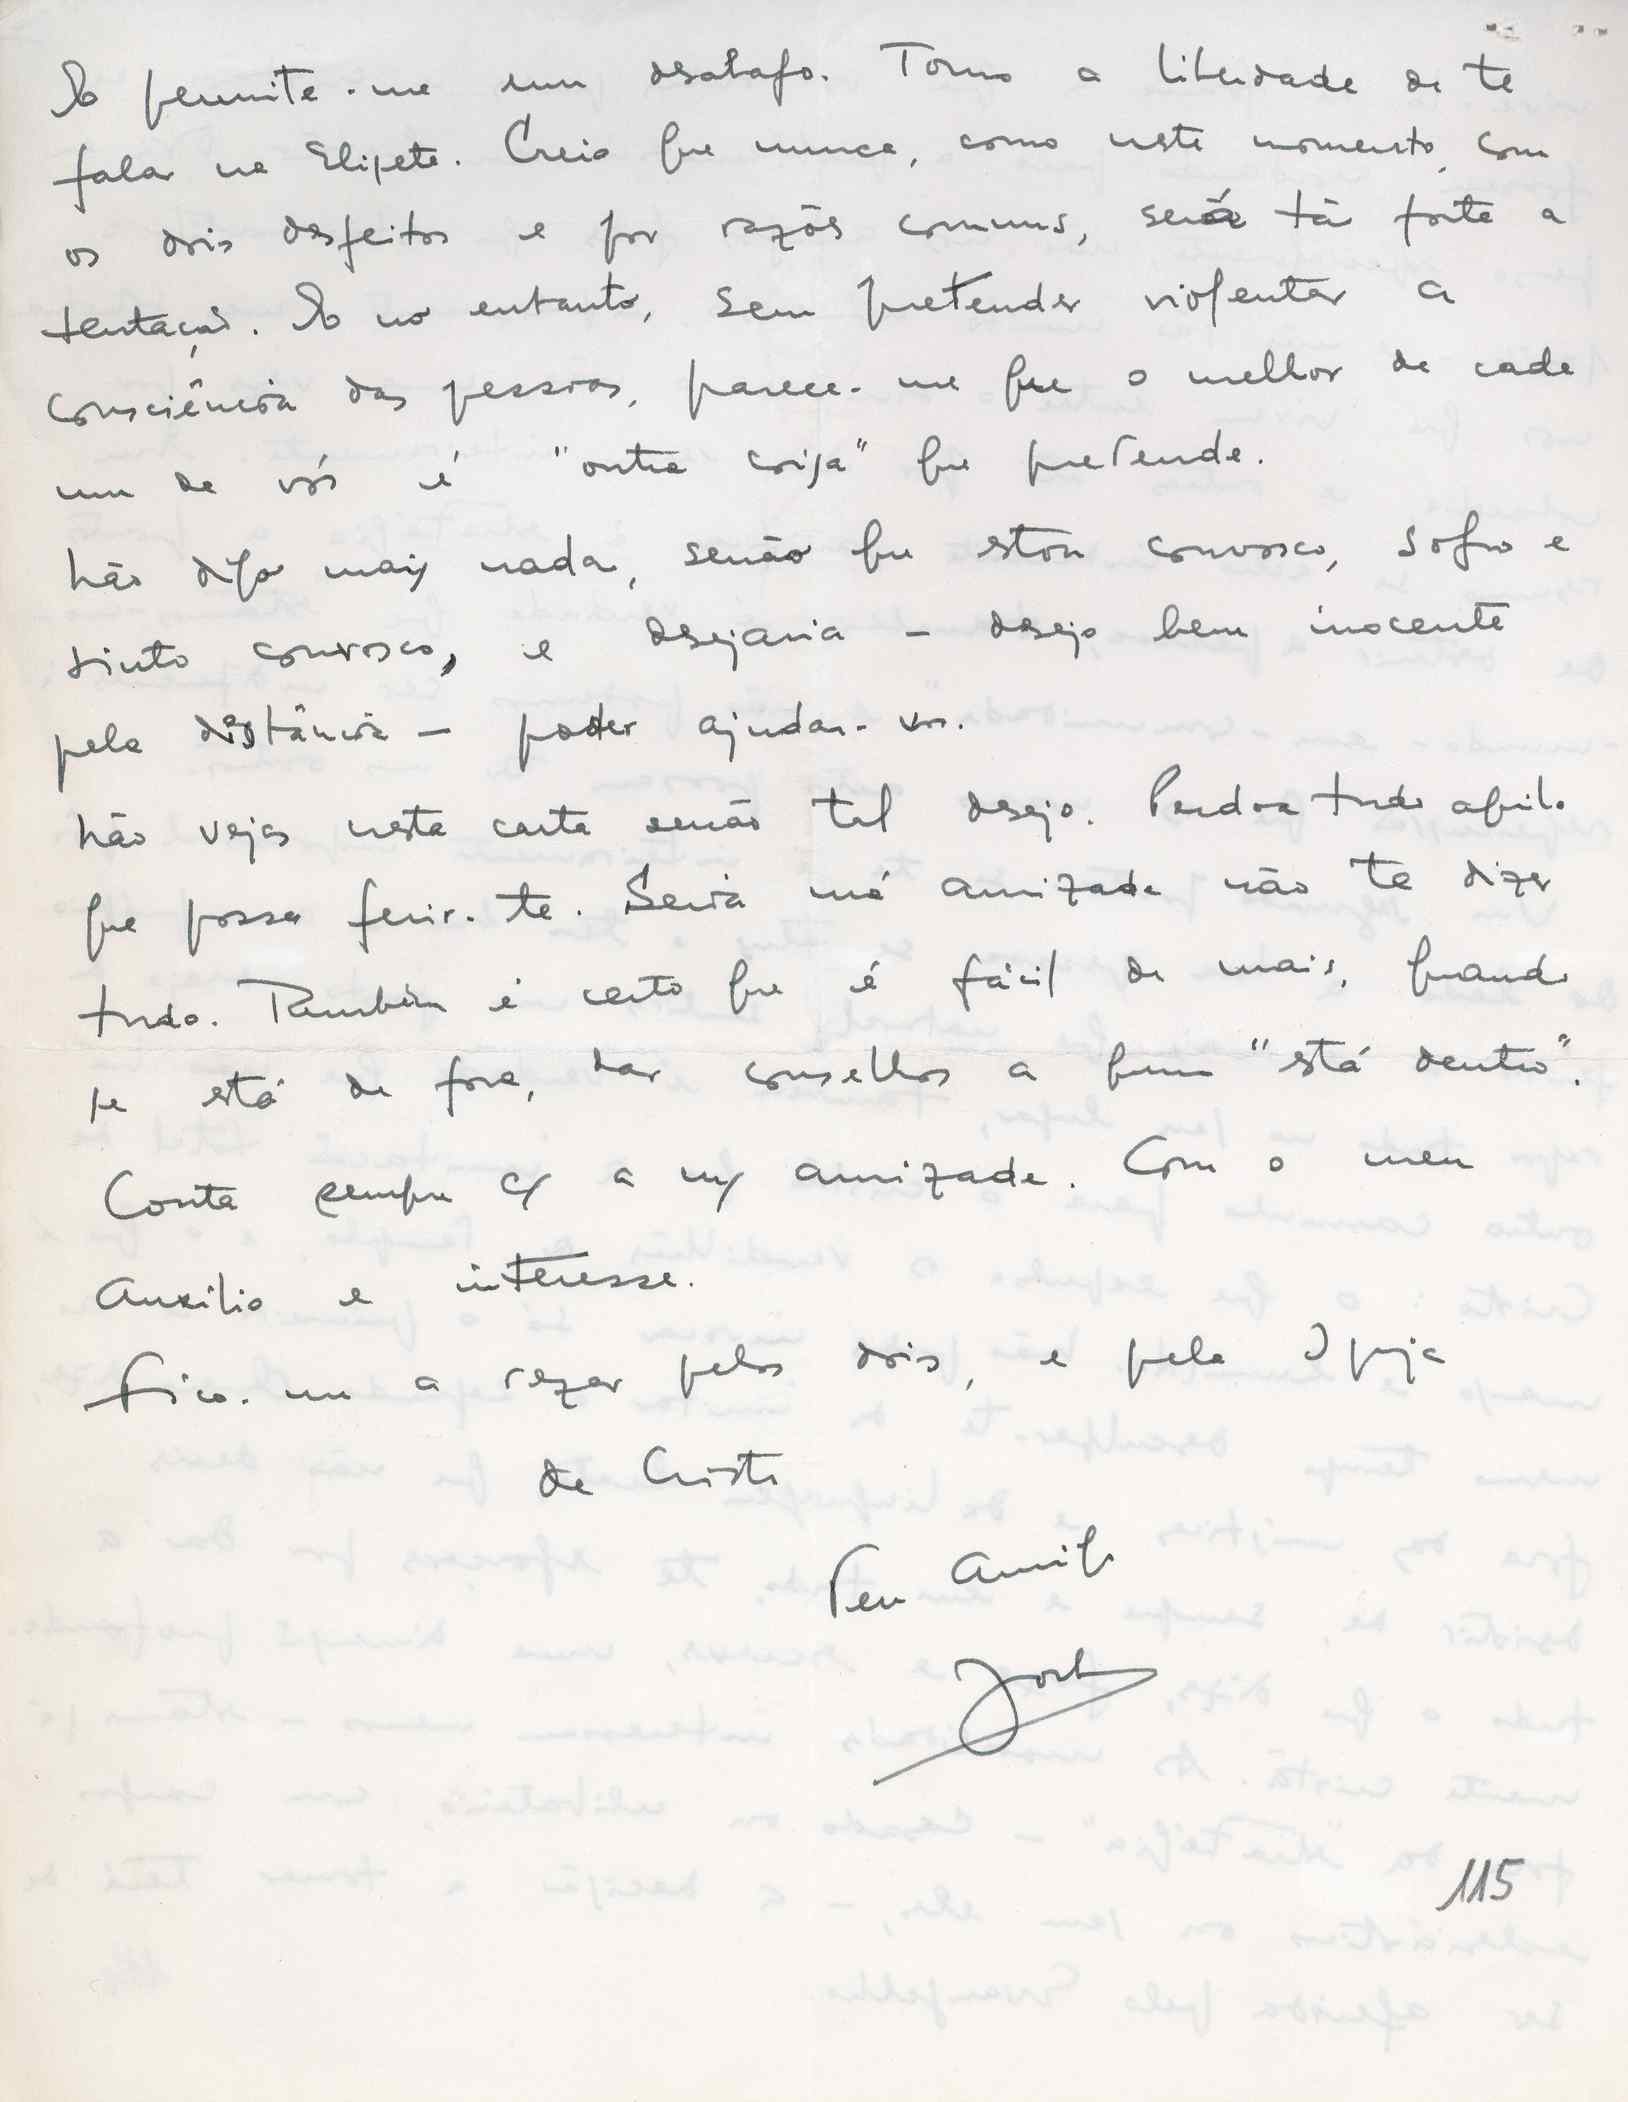 E permite-me um desabafo. Tomo a liberdade de te
falar na Elisete. Creio que nunca, como neste momento, com
os dois desfeitos e por razões comuns, será tão forte a
tentação. E no entanto, sem pretender violentar a
consciência das pessoas, parece-me que o melhor de cada
um de vós é "outra coisa" que pretende.
Não digo mais nada, senão que estou convosco, sofro e
sinto convosco, e desejaria – desejo bem inocente
pela distância – poder ajudar-vos.
Não vejas nesta carta senão tal desejo. Perdoa tudo aquilo
que possa ferir-te. Seria má amizade não te dizer
tudo. Também é certo que é fácil de mais, quando
se está de fora, dar conselhos a quem "está dentro".
Conta sempre c/ a m/ amizade. Com o meu
auxílio e interesse.
Fico-me a rezar pelos dois, e pela Igreja
de Cristo
Teu amigo
115